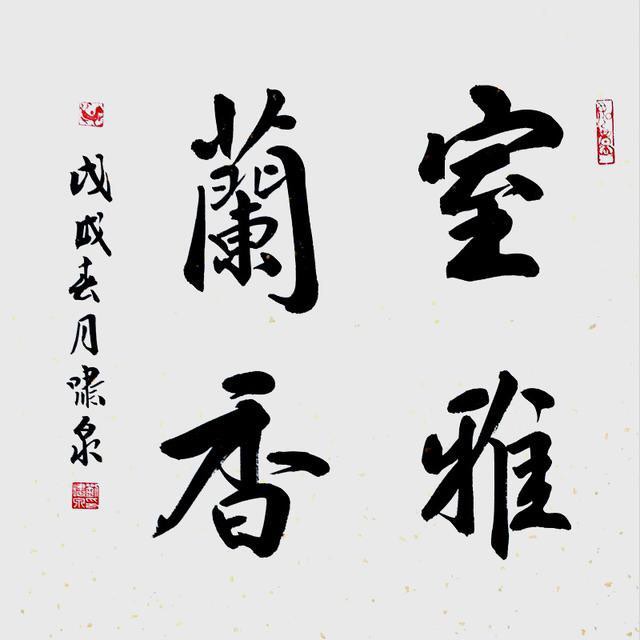 室雅
蘭香
戊戌春月嘯泉